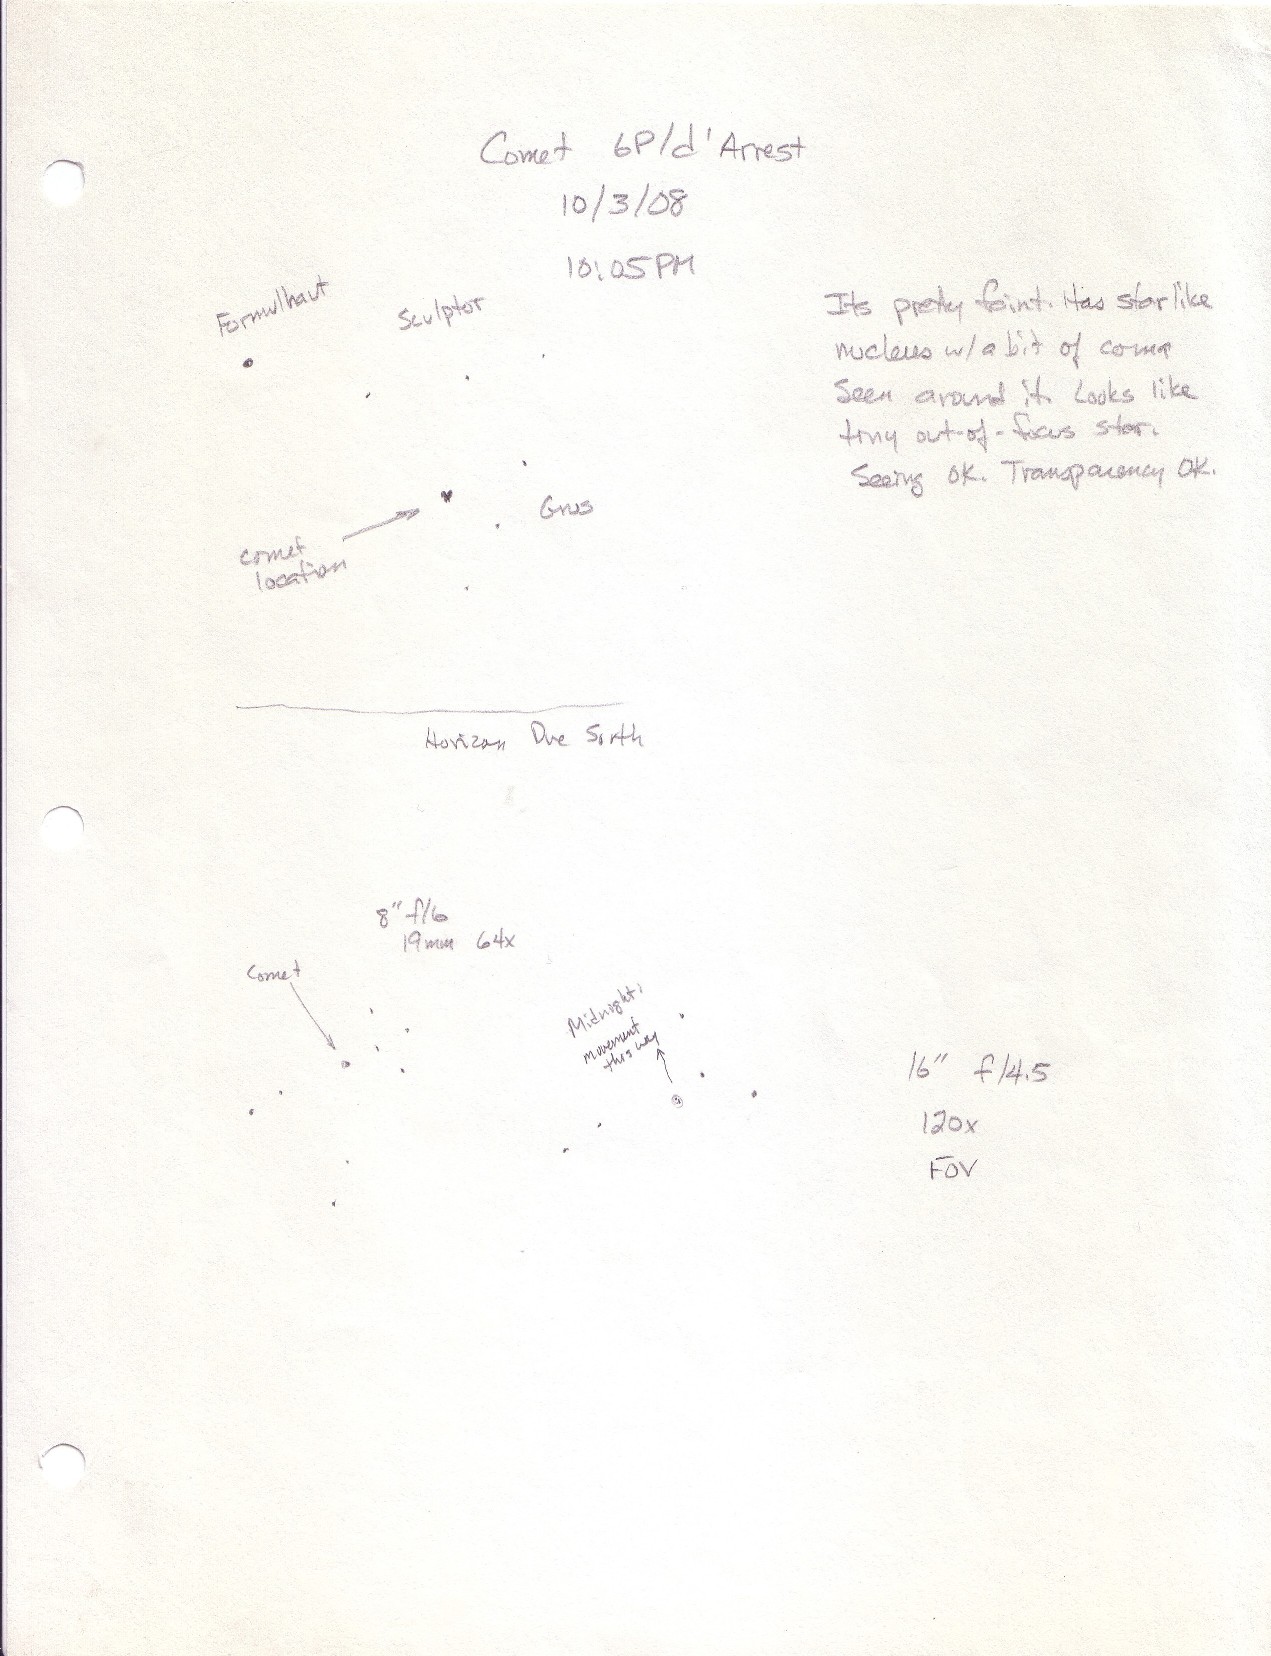 Comet 6P/d'Arrest
10/3/08
10:05PM
Formulhaut
Sculptor
Its pretty faint. Has starlike
nucleus w/a bit of coma
seen around it. Looks like
tiny out-of-focus star.
Seeing OK. Transparency OK.
Grus
comet
location
Horizon Due South
8" f/6
19mm 64x
Comet
Midnight:
movement
this way
16" f/4.5
120x
FOV